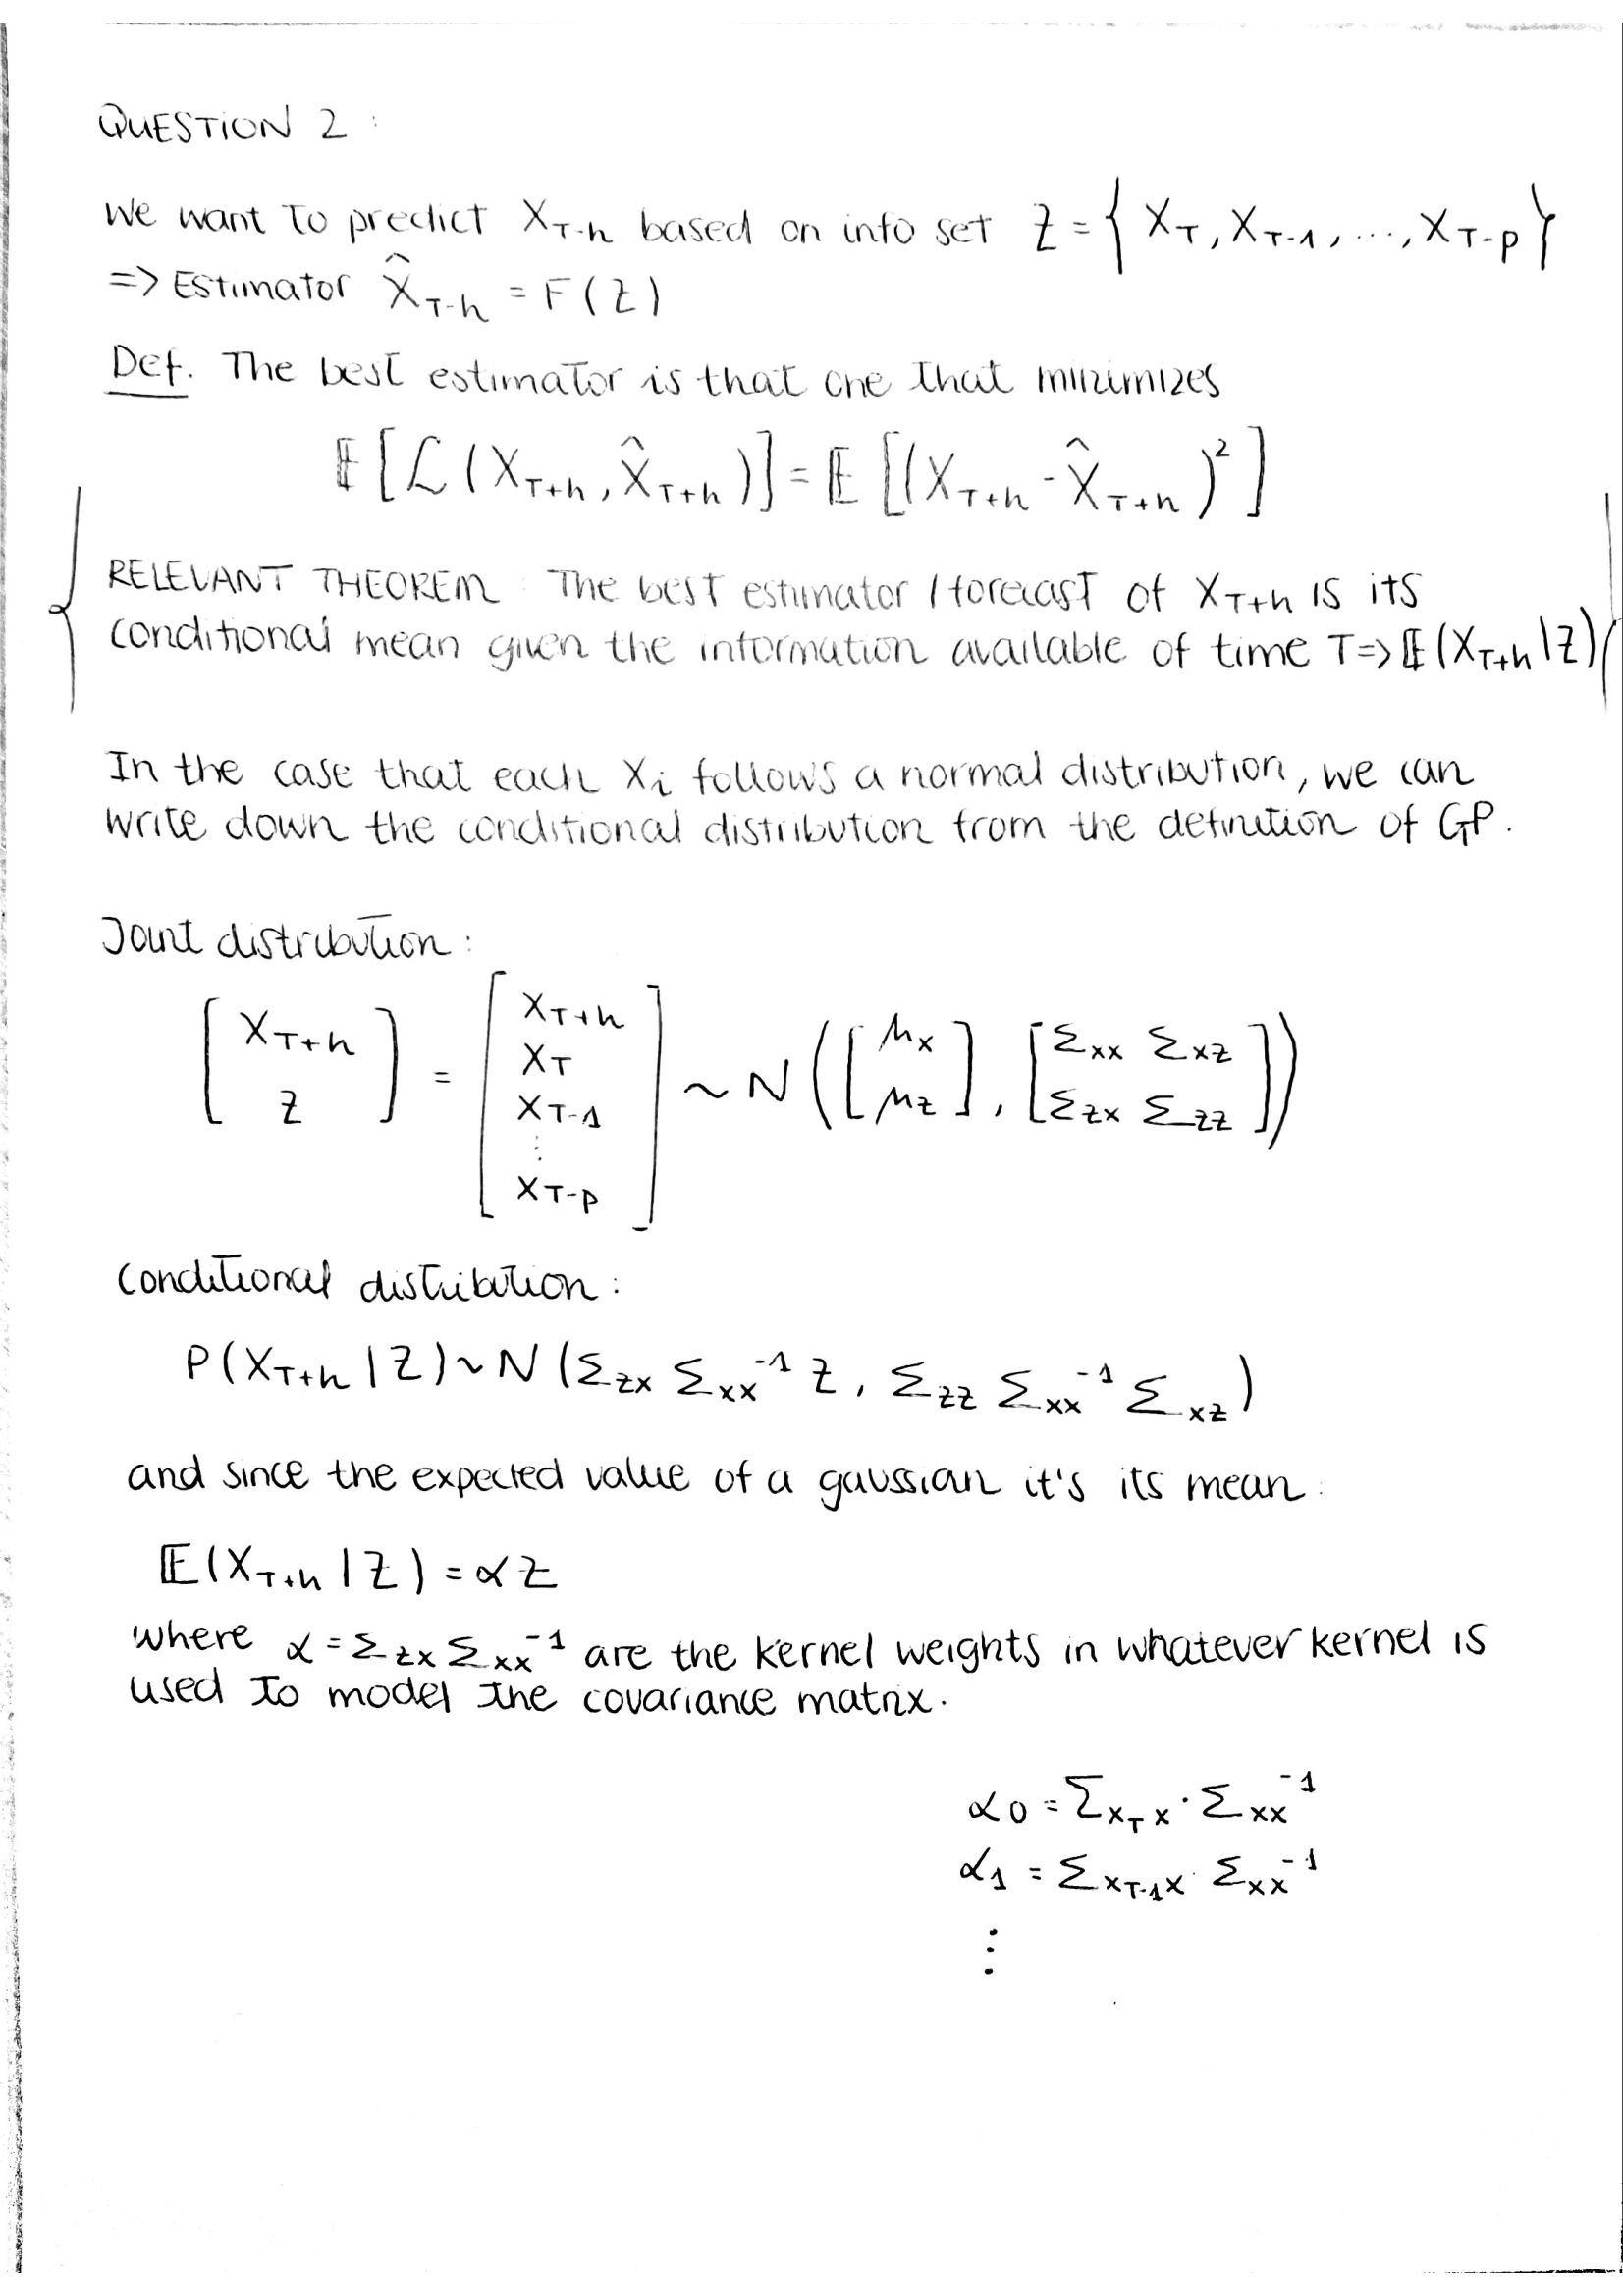 QUESTION 2 :
We want to predict X_{T-h} based on info set Z = { X_T, X_{T-1}, ..., X_{T-p} }
=> Estimator X̂_{T-h} = F(Z)
Def. The best estimator is that one that minimizes
𝔼[ℒ(X_{T+h}, X̂_{T+h})] = 𝔼[(X_{T+h} - X̂_{T+h})²]
RELEVANT THEOREM: The best estimator / forecast of X_{T+h} is its
conditional mean given the information available of time T => 𝔼(X_{T+h}|Z)
In the case that each X_i follows a normal distribution, we can
write down the conditional distribution from the definition of GP.
Joint distribution:
[X_{T+h} ; Z] = [X_{T+h} ; X_T ; X_{T-1} ; ⋮ ; X_{T-p}] ~ N([μ_x ; μ_z], [Σ_{xx} Σ_{xz} ; Σ_{zx} Σ_{zz}])
Conditional distribution:
P(X_{T+h} | Z) ~ N(Σ_{zx} Σ_{xx}^{-1} Z, Σ_{zz} Σ_{xx}^{-1} Σ_{xz})
and since the expected value of a gaussian it's its mean:
𝔼(X_{T+h} | Z) = α Z
where α = Σ_{zx} Σ_{xx}^{-1} are the kernel weights in whatever kernel is
used to model the covariance matrix.
α_0 = Σ_{x_T x} · Σ_{xx}^{-1}
α_1 = Σ_{x_{T-1} x} · Σ_{xx}^{-1}
⋮